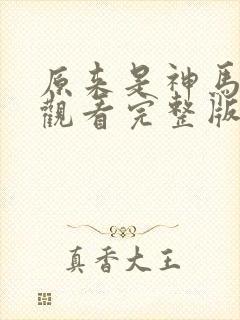 原来是神馬
觀看完整版
真香大王